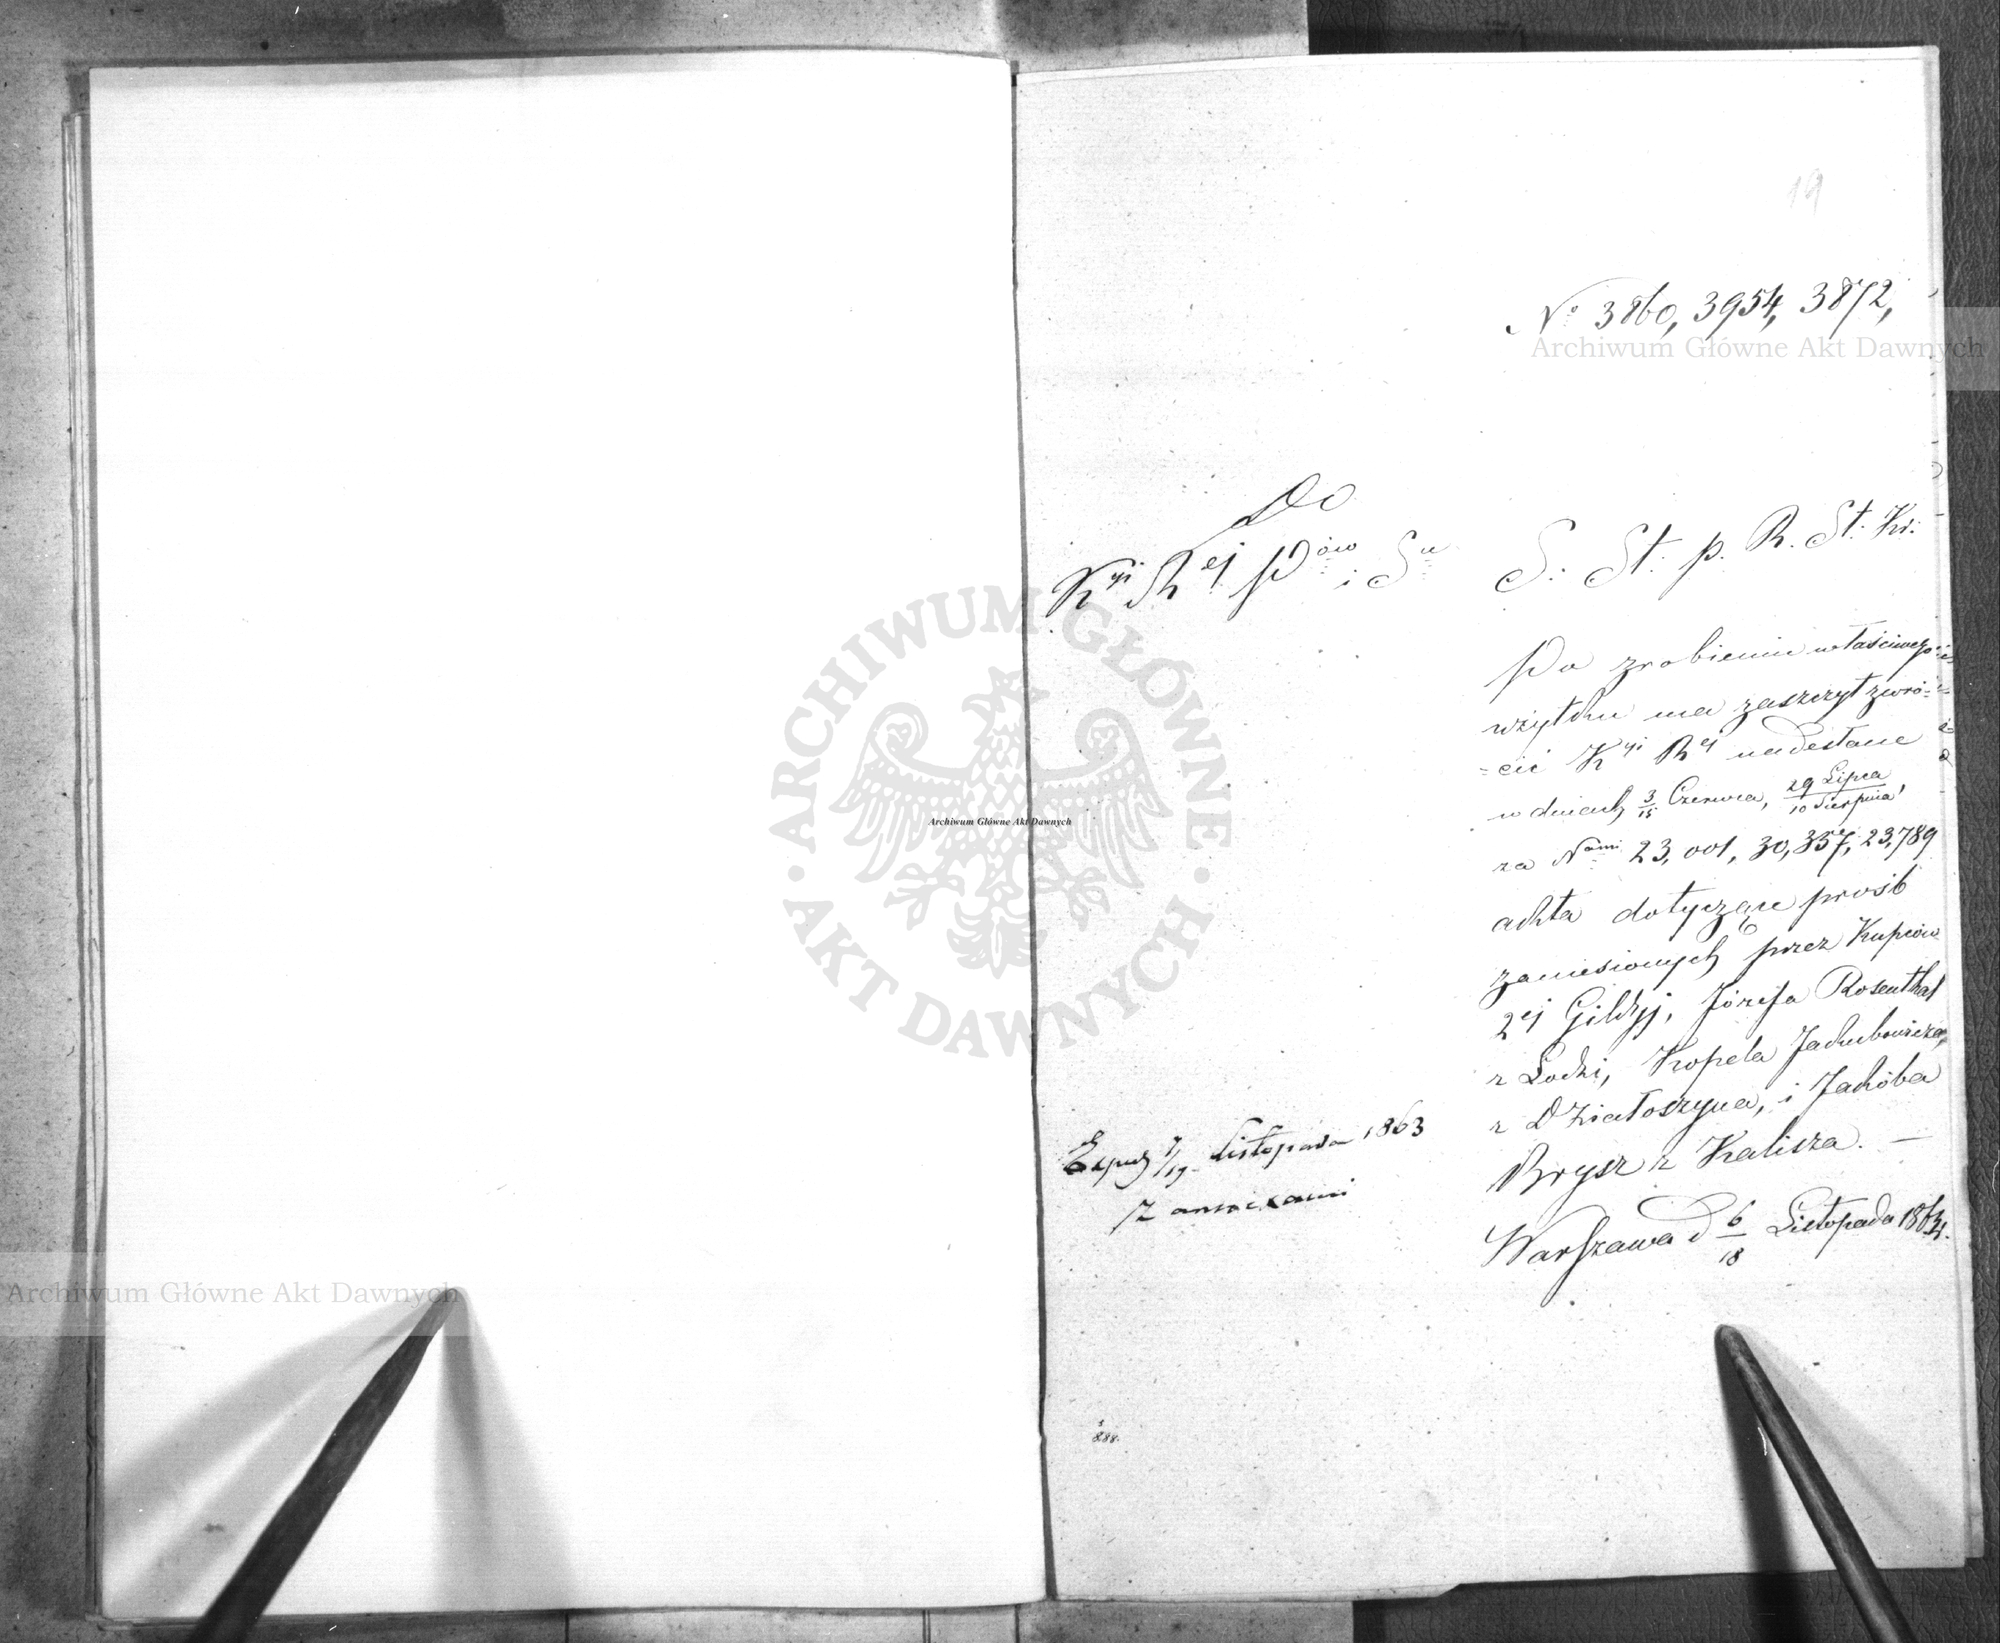 19
No 3860, 3954, 3872,
Do
Kyi Rej Pów i Su
S. St. p. R. St. Kr.
Po zrobieniu właściwego
użytku ma zaszczyt zwró-
-cić Kyi Rej nadesłane
w dniach 3/15 Czerwca, 29 Lipca/10 Sierpnia
za Nami 23,001, 30,357, 23,789
akta dotyczące próśb
zaniesionych przez Kupców
2ej Gildyi, Józefa Rosenthal
z Łodzi, Kopela Jakubowicza,
z Działoszyna, i Jakóba
Brysz z Kalisza. —
Warszawa d 6/18 Listopada 1863 r.
Exped 7/19 Listopada 1863
Z annexami
888.
Archiwum Główne Akt Dawnych
Archiwum Główne Akt Dawnych
Archiwum Główne Akt Dawnych
ARCHIWUM GŁÓWNE
AKT DAWNYCH